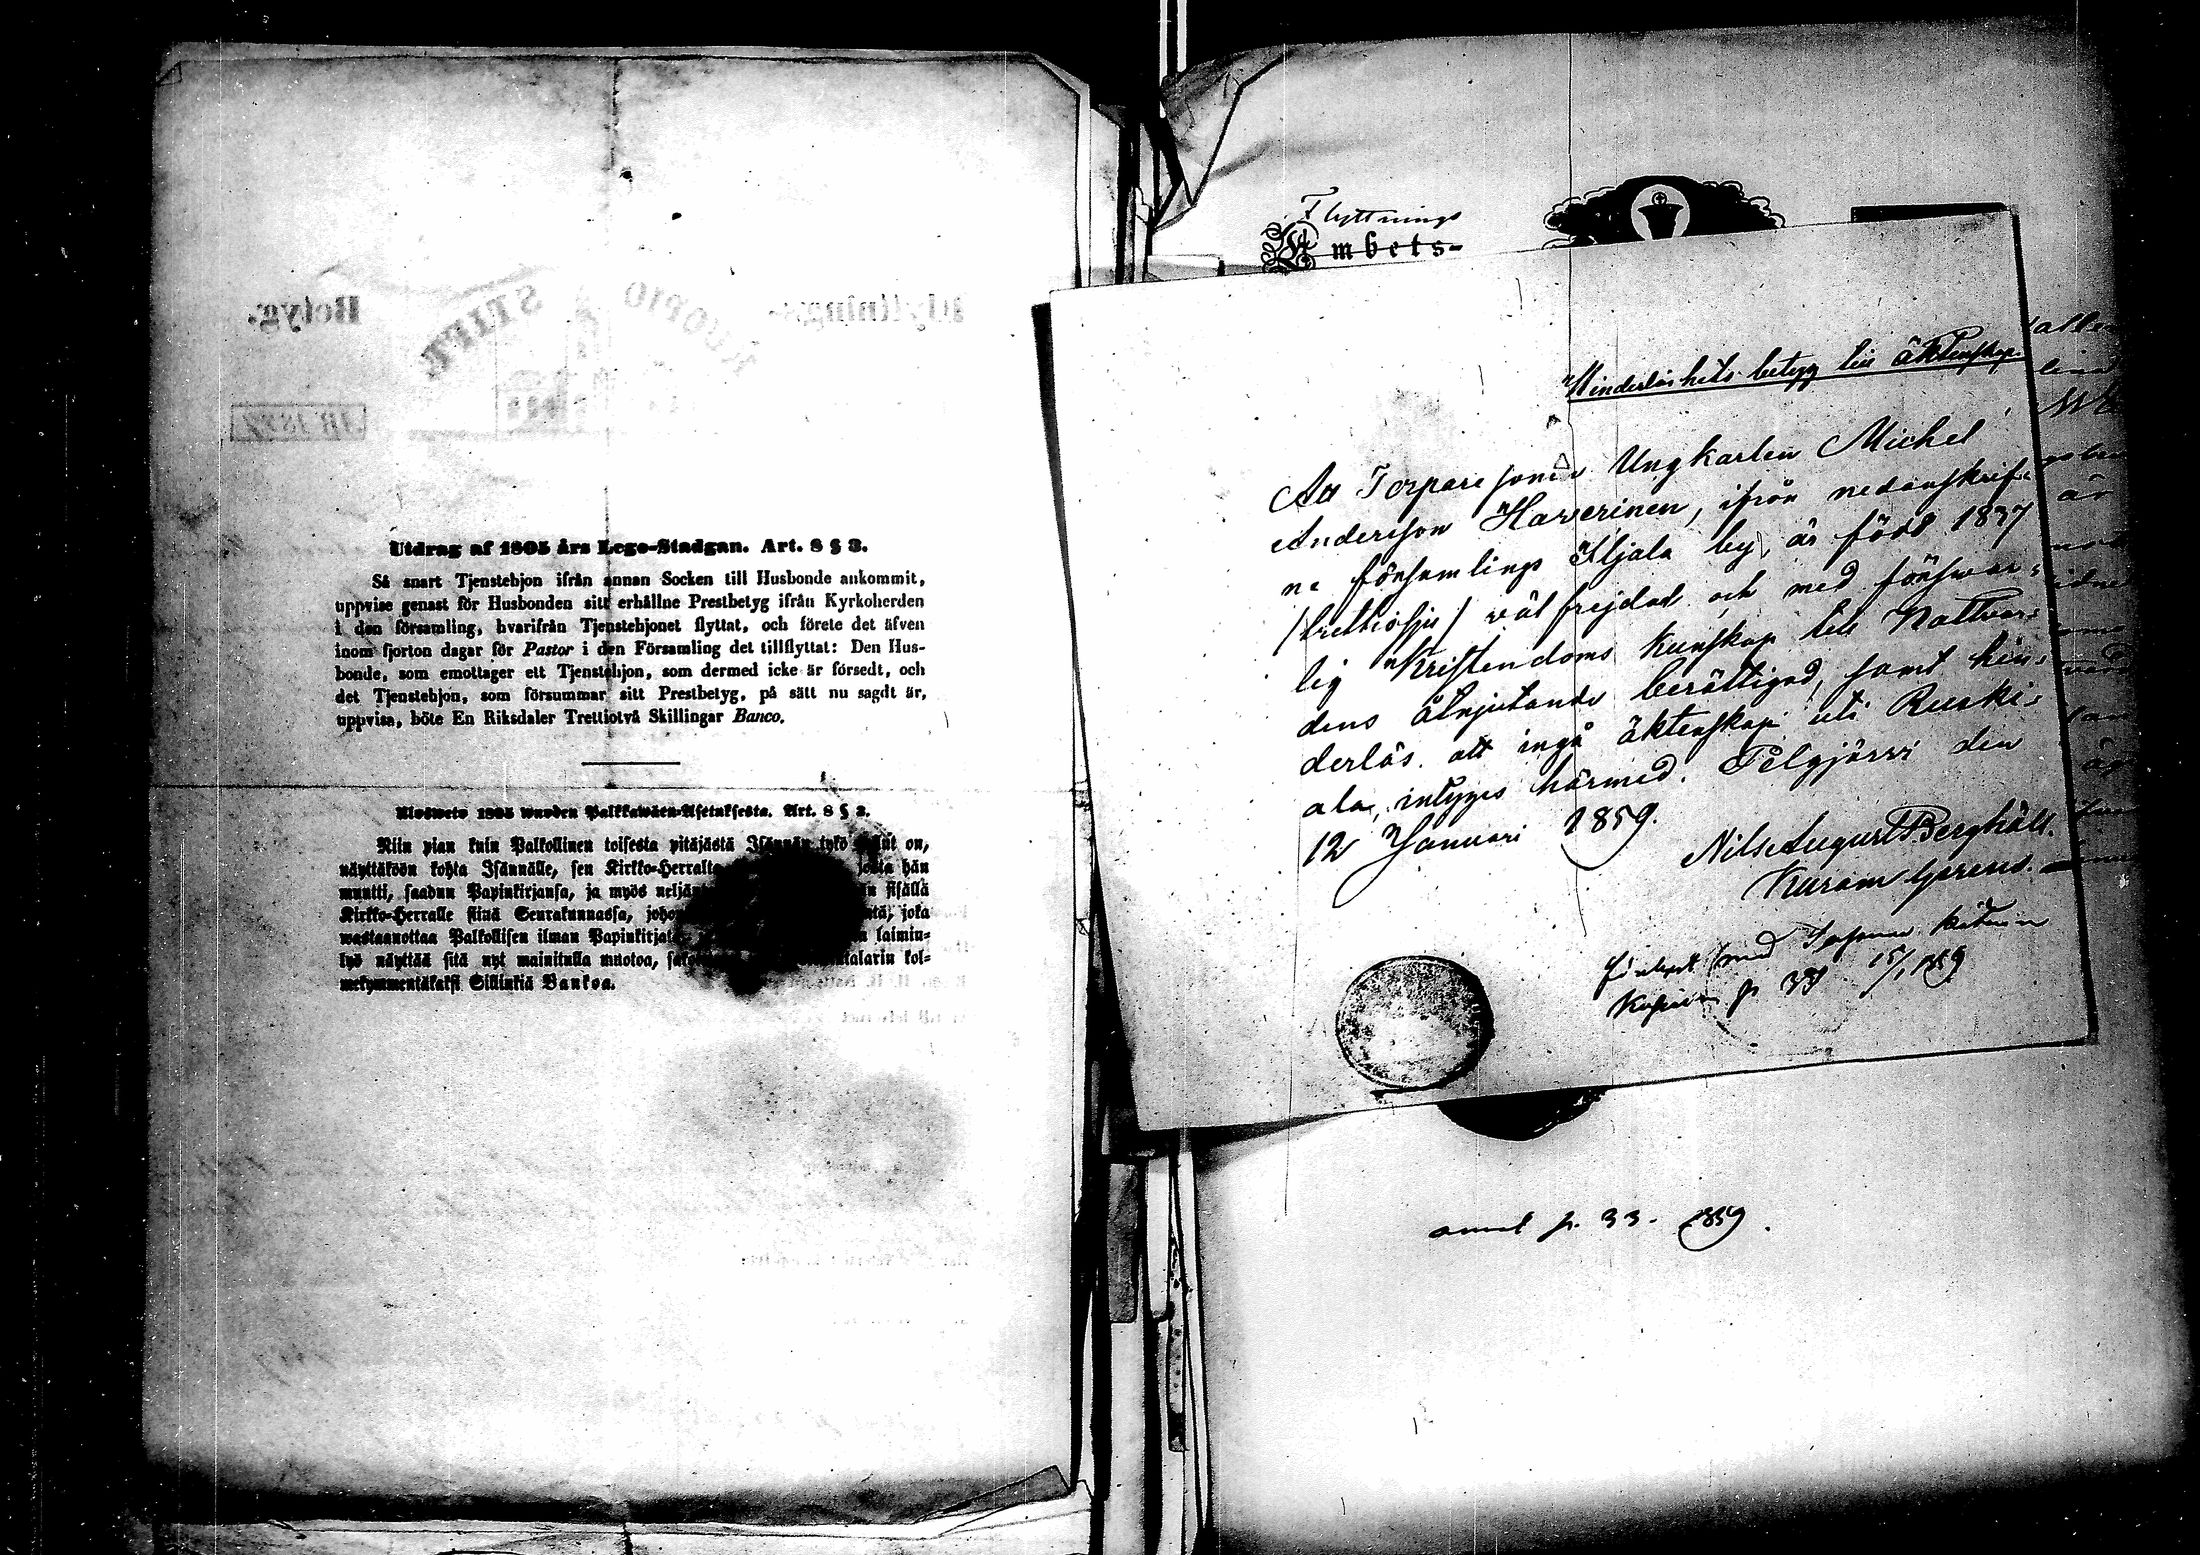 Utdrag af 1805 års Lego-Stadgan. Art. 8 § 3.
Så snart Tjenstehjon ifrån annan Socken till Husbonde ankommit,
uppvise genast för Husbonden sitt erhållne Prestbetyg ifrån Kyrkoherden
i den församling, hvarifrån Tjenstehjonet flyttat, och förete det äfven
inom fjorton dagar för Pastor i den Församling det tillflyttat: Den Hus-
bonde, som emottager ett Tjenstehjon, som dermed icke är försedt, och
det Tjenstehjon, som försummar sitt Prestbetyg, på sätt nu sagdt är,
uppvisa, böte En Riksdaler Trettiotvå Skillingar Banco.
Ulosweto 1805 wuoden Palkkawäen-Asetuksesta. Art. 8 § 3.
Niin pian kuin Palkollinen toisesta pitäjästä Isännän tykö on,
näyttäköön kohta Isännälle, sen Kirkko-Herralta hän
muutti, saadun Papinkirjansa, ja myös sisällä
Kirkko-Herralle siinä Seurakunnassa, joka
wastaanottaa Palkollisen ilman laimin-
lyö näyttää sitä nyt mainitulla muotoa, kol-
mekymmentäkaksi Sillinkiä Bankoa.
Flyttnings
Ambets-
Hinderlöshets betyg till äktenskap.
Att Torpare sonen Ungkarlen Michel
Andersson Haverinen, ifrån nedanskrif-
ne församlings Iljala by, är född 1837
/trettiosju/ väl frejdad och med försvar-
lig Kristendoms kunskap till Nattvar-
dens åtnjutande berättigad, samt hin-
derlös att ingå äktenskap uti Ruski-
ala, intygas härmed. Pelgjärvi den
12 Januari 1859.
Nils August Berghäll.
Kuram gerens.
med
p 33 15/1 1859
p. 33. 1859.